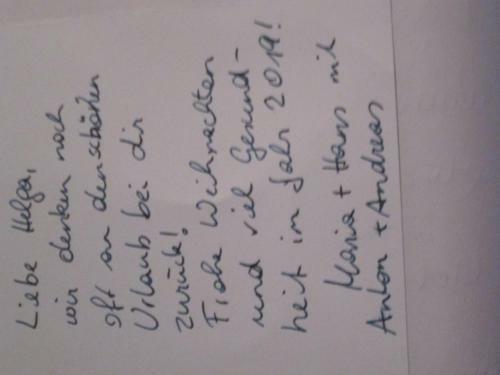 Liebe Helga,
wir denken noch
oft an den schönen
Urlaub bei dir
zurück!
Frohe Weihnachten
und viel Gesund-
heit im Jahr 2019!
Maria + Hans mit
Anton + Andreas